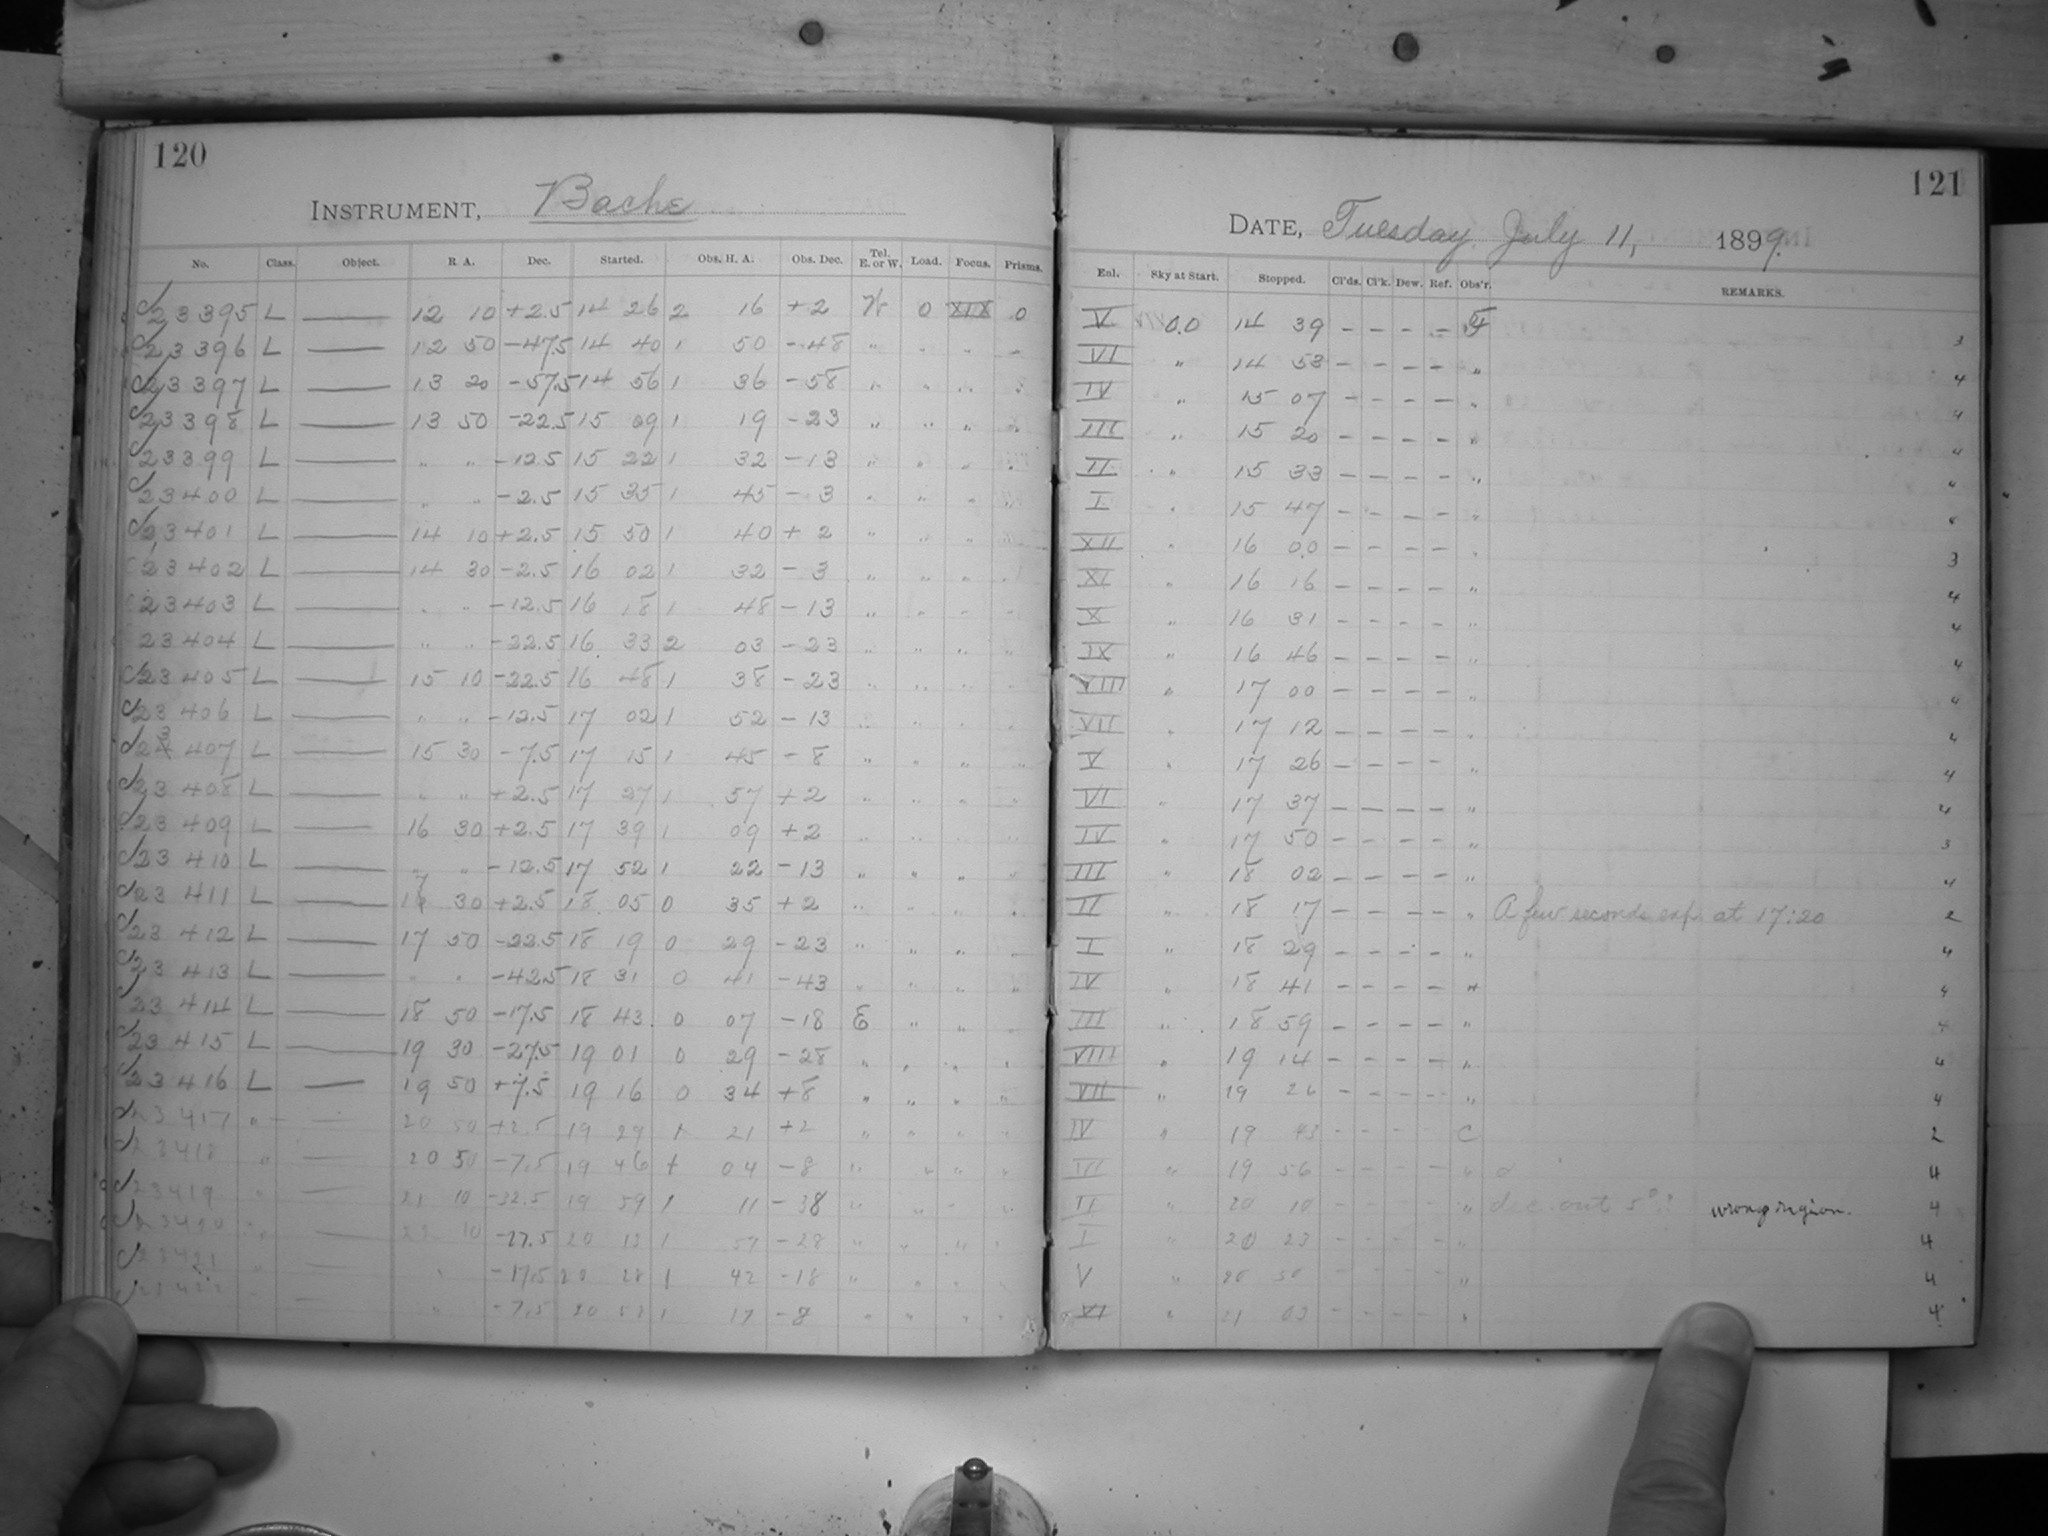 120
INSTRUMENT, Bache
No. Class. Object. R. A. Dec. Started. Obs. H. A. Obs. Dec. Tel. E. or W. Load. Focus. Prisms.
23395 L — 12 10 +2.5 14 26 2 16 +2 W 0 XIX 0
23396 L — 12 50 -47.5 14 40 1 50 -48 " " " "
23397 L — 13 20 -57.5 14 56 1 36 -58 " " " "
23398 L — 13 50 -22.5 15 09 1 19 -23 " " " "
23399 L — " " -12.5 15 22 1 32 -13 " " " "
23400 L — " " -2.5 15 35 1 45 -3 " " " "
23401 L — 14 10 +2.5 15 50 1 40 +2 " " " "
23402 L — 14 30 -2.5 16 02 1 32 -3 " " " "
23403 L — " " -12.5 16 18 1 48 -13 " " " "
23404 L — " " -22.5 16 33 2 03 -23 " " " "
23405 L — 15 10 -22.5 16 48 1 38 -23 " " " "
23406 L — " " -12.5 17 02 1 52 -13 " " " "
23407 L — 15 30 -7.5 17 15 1 45 -8 " " " "
23408 L — " " +2.5 17 27 1 57 +2 " " " "
23409 L — 16 30 +2.5 17 39 1 09 +2 " " " "
23410 L — " " -12.5 17 52 1 22 -13 " " " "
23411 L — 17 30 +2.5 18 05 0 35 +2 " " " "
23412 L — 17 50 -22.5 18 19 0 29 -23 " " " "
23413 L — " " -42.5 18 31 0 41 -43 " " " "
23414 L — 18 50 -17.5 18 43 0 07 -18 E " " "
23415 L — 19 30 -27.5 19 01 0 29 -28 " " " "
23416 L — 19 50 +7.5 19 16 0 34 +8 " " " "
23417 " — 20 50 +2.5 19 29 1 21 +2 " " " "
23418 " — 20 50 -7.5 19 46 1 04 -8 " " " "
23419 " — 21 10 -32.5 19 59 1 11 -38 " " " "
23420 " — 10 -27.5 20 13 1 57 -28 " " " "
23421 " — " -17.5 20 28 1 42 -18 " " " "
23422 — " -7.5 20 53 1 17 -8 " " " "
121
DATE, Tuesday July 11, 1899.
Enl. Sky at Start. Stopped. Cl'ds. Cl'k. Dew. Ref. Obs'r. REMARKS.
V 0.0 14 39 – – – – 3
VI " 14 53 – – – – " 4
IV " 15 07 – – – – " 4
III " 15 20 – – – – " "
II " 15 33 – – – – " "
I " 15 47 – – – – " "
XII " 16 00 – – – – " 3
XI " 16 16 – – – – " 4
X " 16 31 – – – – " 4
IX " 16 46 – – – – " 4
VIII " 17 00 – – – – " 4
VII " 17 12 – – – – " 4
V " 17 26 – – – – " 4
VI " 17 37 – – – – " 4
IV " 17 50 – – – – " 3
III " 18 02 – – – – " 4
II " 18 17 – – – – " A few seconds exp. at 17:20 2
I " 18 29 – – – – " 4
IV " 18 41 – – – – " 4
III " 18 59 – – – – " 4
VIII " 19 14 – – – – " 4
VII " 19 26 – – – – " 4
IV " 19 43 – – – – C 2
III " 19 56 – – – – " 4
II " 20 10 – – – – " dec. out 5°? wrong region. 4
I " 20 23 – – – – " 4
V " 20 50 – – – – " 4
VI " 21 03 – – – – " 4